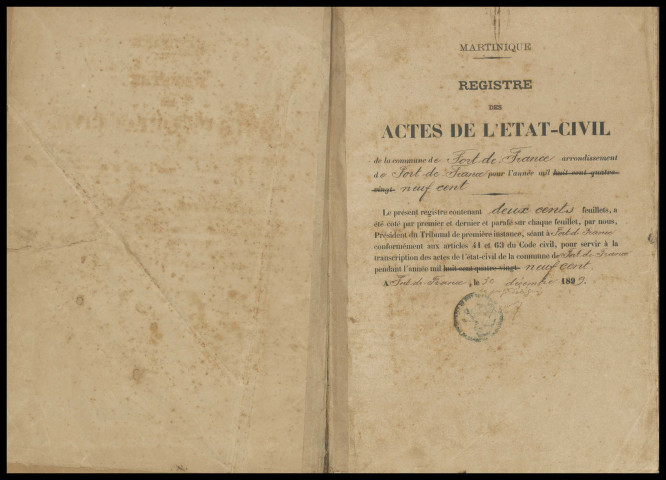 MARTINIQUE
REGISTRE
DES
ACTES DE L'ETAT-CIVIL
de la commune de Fort-de-France arrondissement
de Fort-de-France pour l'année mil huit cent quatre-
vingt neuf cent
Le présent registre contenant deux cents feuillets, a
été coté par premier et dernier et parafé sur chaque feuillet, par nous,
Président du Tribunal de première instance, séant à Fort-de-France
conformément aux articles 41 et 63 du Code civil, pour servir à la
transcription des actes de l'état-civil de la commune de Fort-de-France
pendant l'année mil huit cent quatre-vingt neuf cent
A Fort-de-France, le 30 décembre 1899.